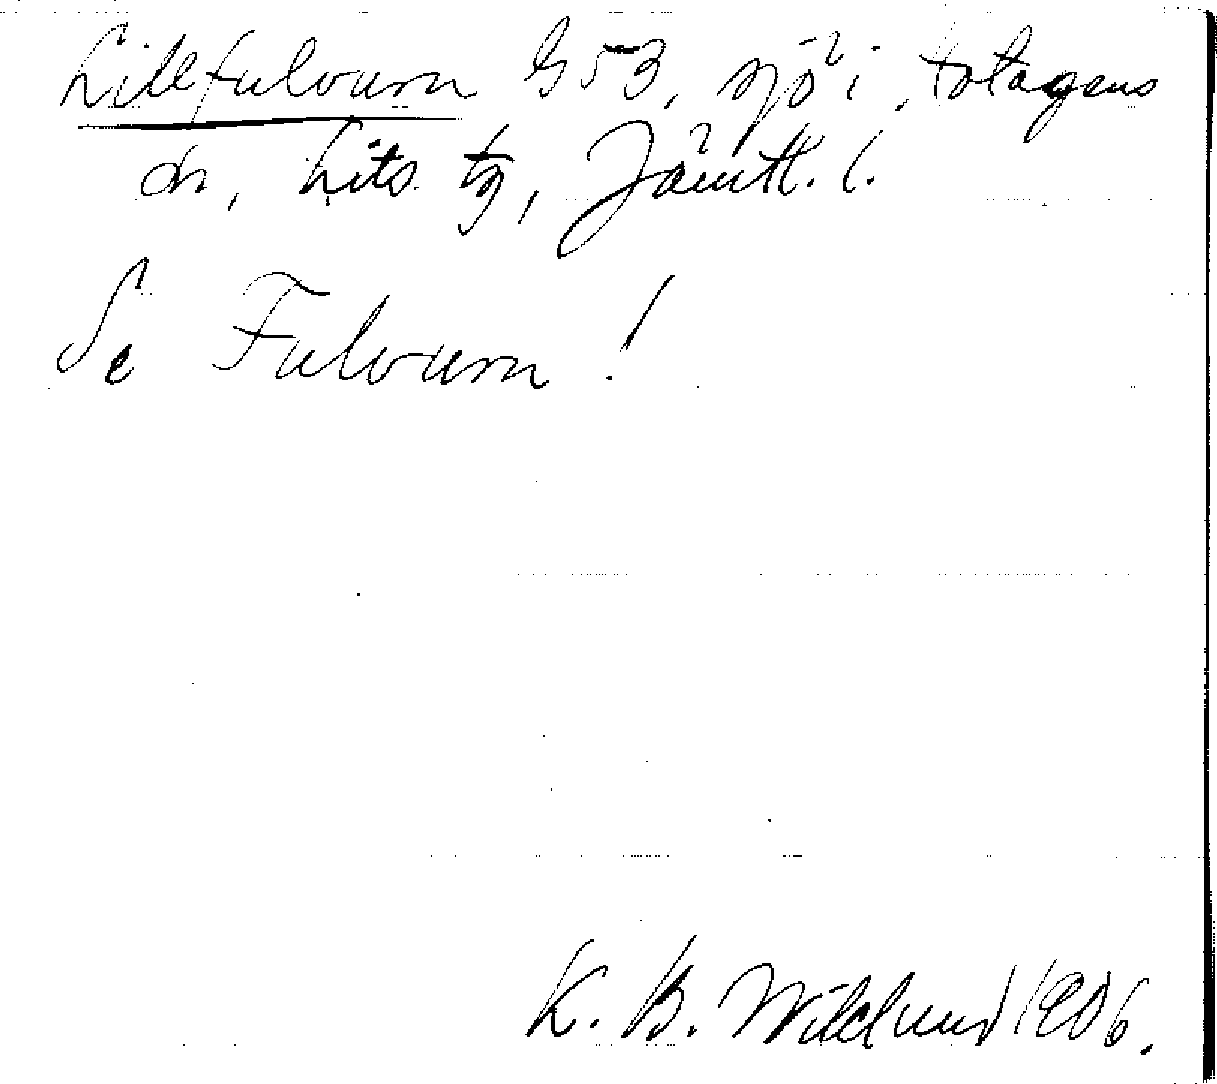 Lillfulvurn G53, sjö i Hotagens
sn, Lits tg, Jämtl. l.
Se Fulvurn!
K. B. Wiklund 1906.